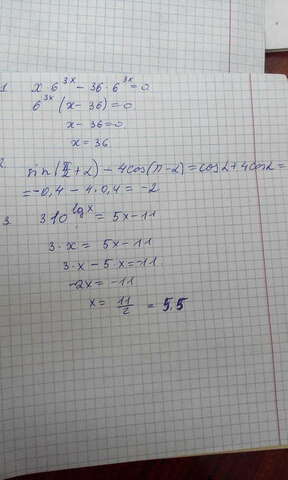 1. x · 6^3x − 36 · 6^3x = 0
6^3x (x − 36) = 0
x − 36 = 0
x = 36
2. sin(π/2 + α) − 4cos(π − α) = cosα + 4cosα =
= −0,4 − 4 · 0,4 = −2
3. 3 10^lgx = 5x − 11
3 · x = 5x − 11
3 · x − 5 · x = −11
−2x = −11
x = 11/2 = 5.5